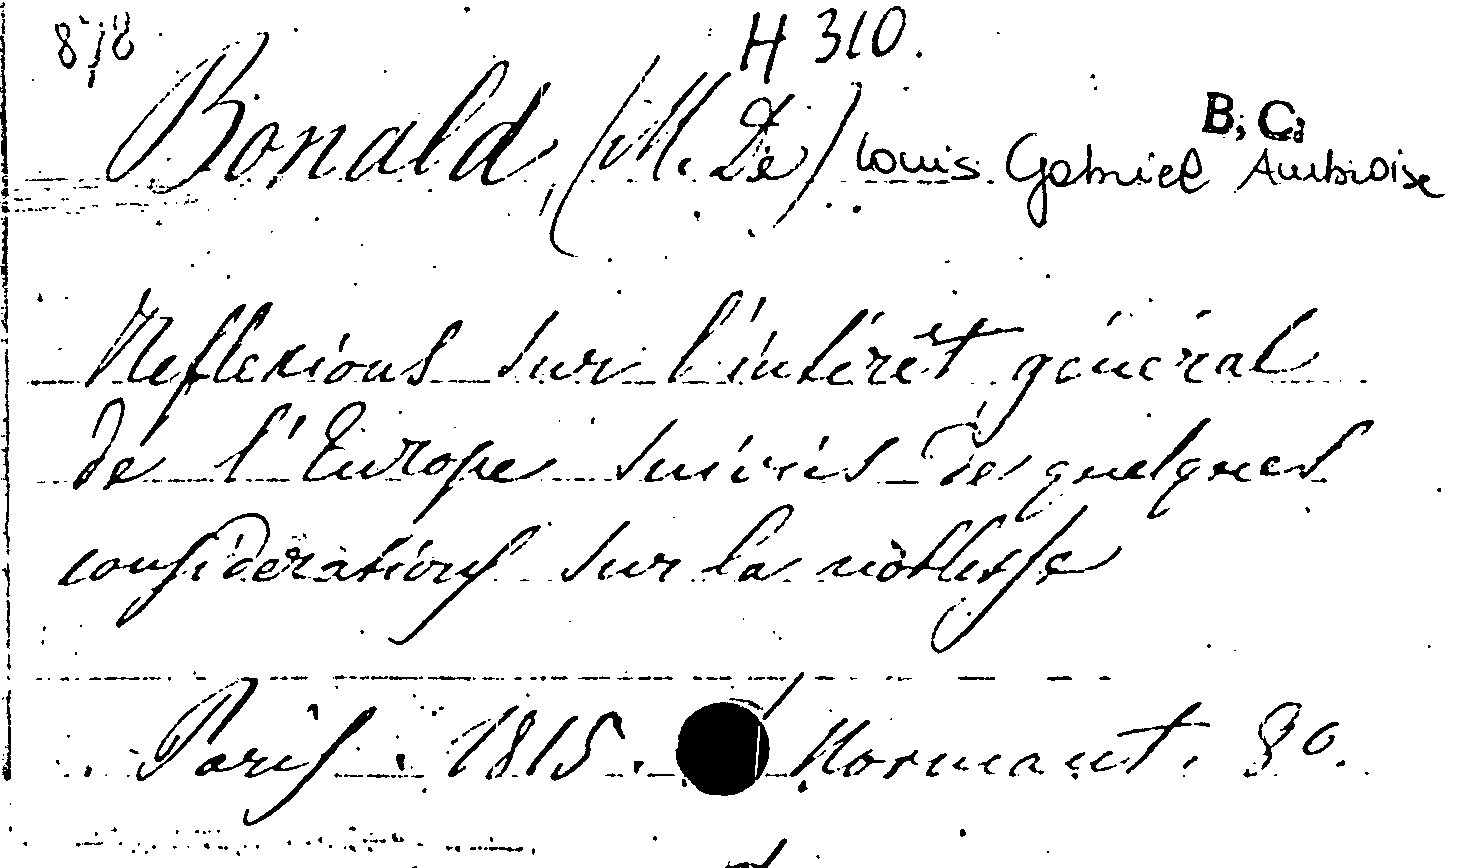 878 H 310.
B, C,
Bonald, (M. De) Louis Gabriel Ambroise
Réflexions sur l'intérêt général
de l'Europe suivis de quelques
considérations sur la noblesse
Paris. 1815. Normant. 8o.